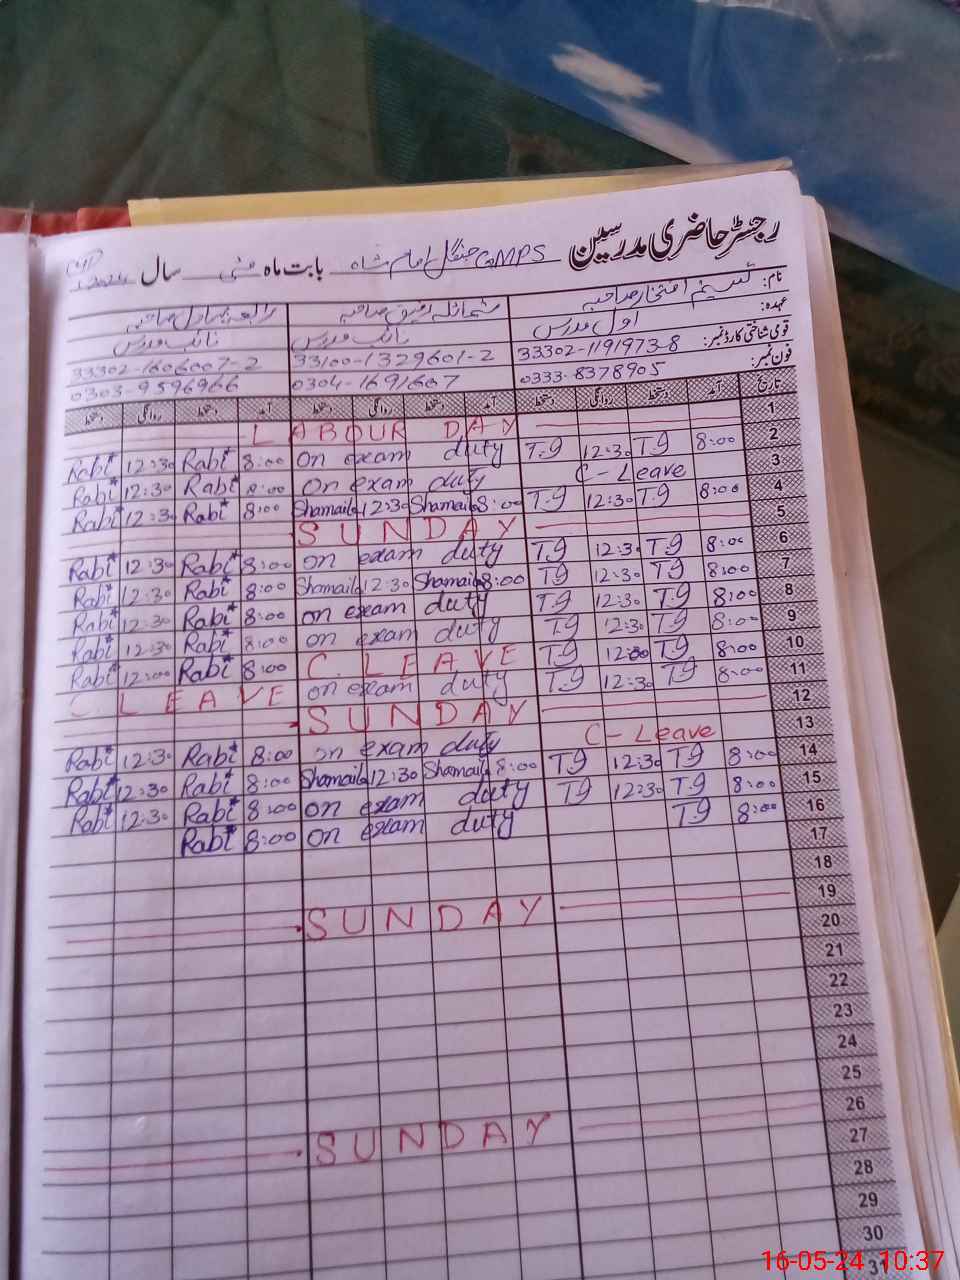 رجسٹر حاضری مدرسین GMPS جنگل امام شاہ بابت ماہ مئی سال 2024
نام: تسنیم افتخار صاحبہ شمائلہ رفیق صاحبہ رابعہ بہادل صاحبہ
عہدہ: اول مدرس نائب مدرس نائب مدرس
قومی شناختی کارڈ نمبر: 33302-1191973-8 33100-1329601-2 33302-1606007-2
فون نمبر: 0333-8378905 0304-1691607 0303-9596966
تاریخ آمد دستخط روانگی دستخط آمد دستخط روانگی دستخط آمد دستخط روانگی دستخط
1 LABOUR DAY
2 8:00 T.g 12:30 T.g on exam duty 8:00 Rabi 12:30 Rabi
3 C-Leave on exam duty 8:00 Rabi 12:30 Rabi
4 8:00 T.g 12:30 T.g 8:00 Shamaila 12:30 Shamaila 8:00 Rabi 12:30 Rabi
5 SUNDAY
6 8:00 T.g 12:30 T.g on exam duty 8:00 Rabi 12:30 Rabi
7 8:00 T.g 12:30 T.g 8:00 Shamaila 12:30 Shamaila 8:00 Rabi 12:30 Rabi
8 8:00 T.g 12:30 T.g on exam duty 8:00 Rabi 12:30 Rabi
9 8:00 T.g 12:30 T.g on exam duty 8:00 Rabi 12:30 Rabi
10 8:00 T.g 12:00 T.g C. LEAVE 8:00 Rabi 12:00 Rabi
11 8:00 T.g 12:30 T.g on exam duty C. LEAVE
12 SUNDAY
13 C-Leave on exam duty 8:00 Rabi 12:30 Rabi
14 8:00 T.g 12:30 T.g 8:00 Shamaila 12:30 Shamaila 8:00 Rabi 12:30 Rabi
15 8:00 T.g 12:30 T.g on exam duty 8:00 Rabi 12:30 Rabi
16 8:00 T.g on exam duty 8:00 Rabi
17
18
19 SUNDAY
20
21
22
23
24
25
26 SUNDAY
27
28
29
30
31
16-05-24 10:37